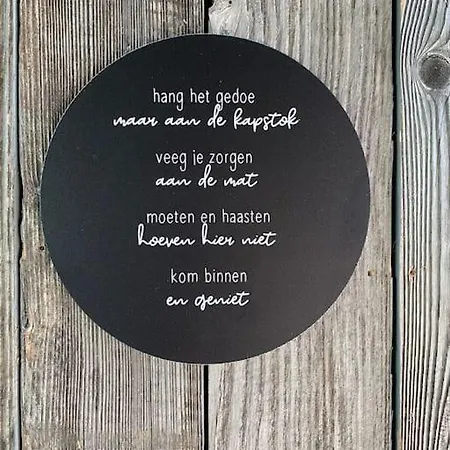 hang het gedoe
maar aan de kapstok
veeg je zorgen
aan de mat
moeten en haasten
hoeven hier niet
kom binnen
en geniet